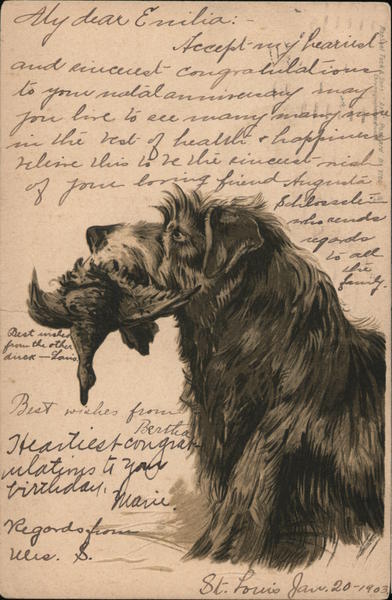 My dear Emilia:-
Accept my heariest
and sincerest congratulations
to your natal anniversary may
you live to see many many more
in the best of health & happiness
believe this to be the sincerest wish
of your loving friend Augusta
Schlossstein
who sends
regards
to all
the
family.
Best wishes
from the other
duck -
Best wishes from
Bertha
Heartiest congrat-
ulations to your
birthday.
Marie.
Regards from
Mrs. S.
St. Louis Jan. 20-1903